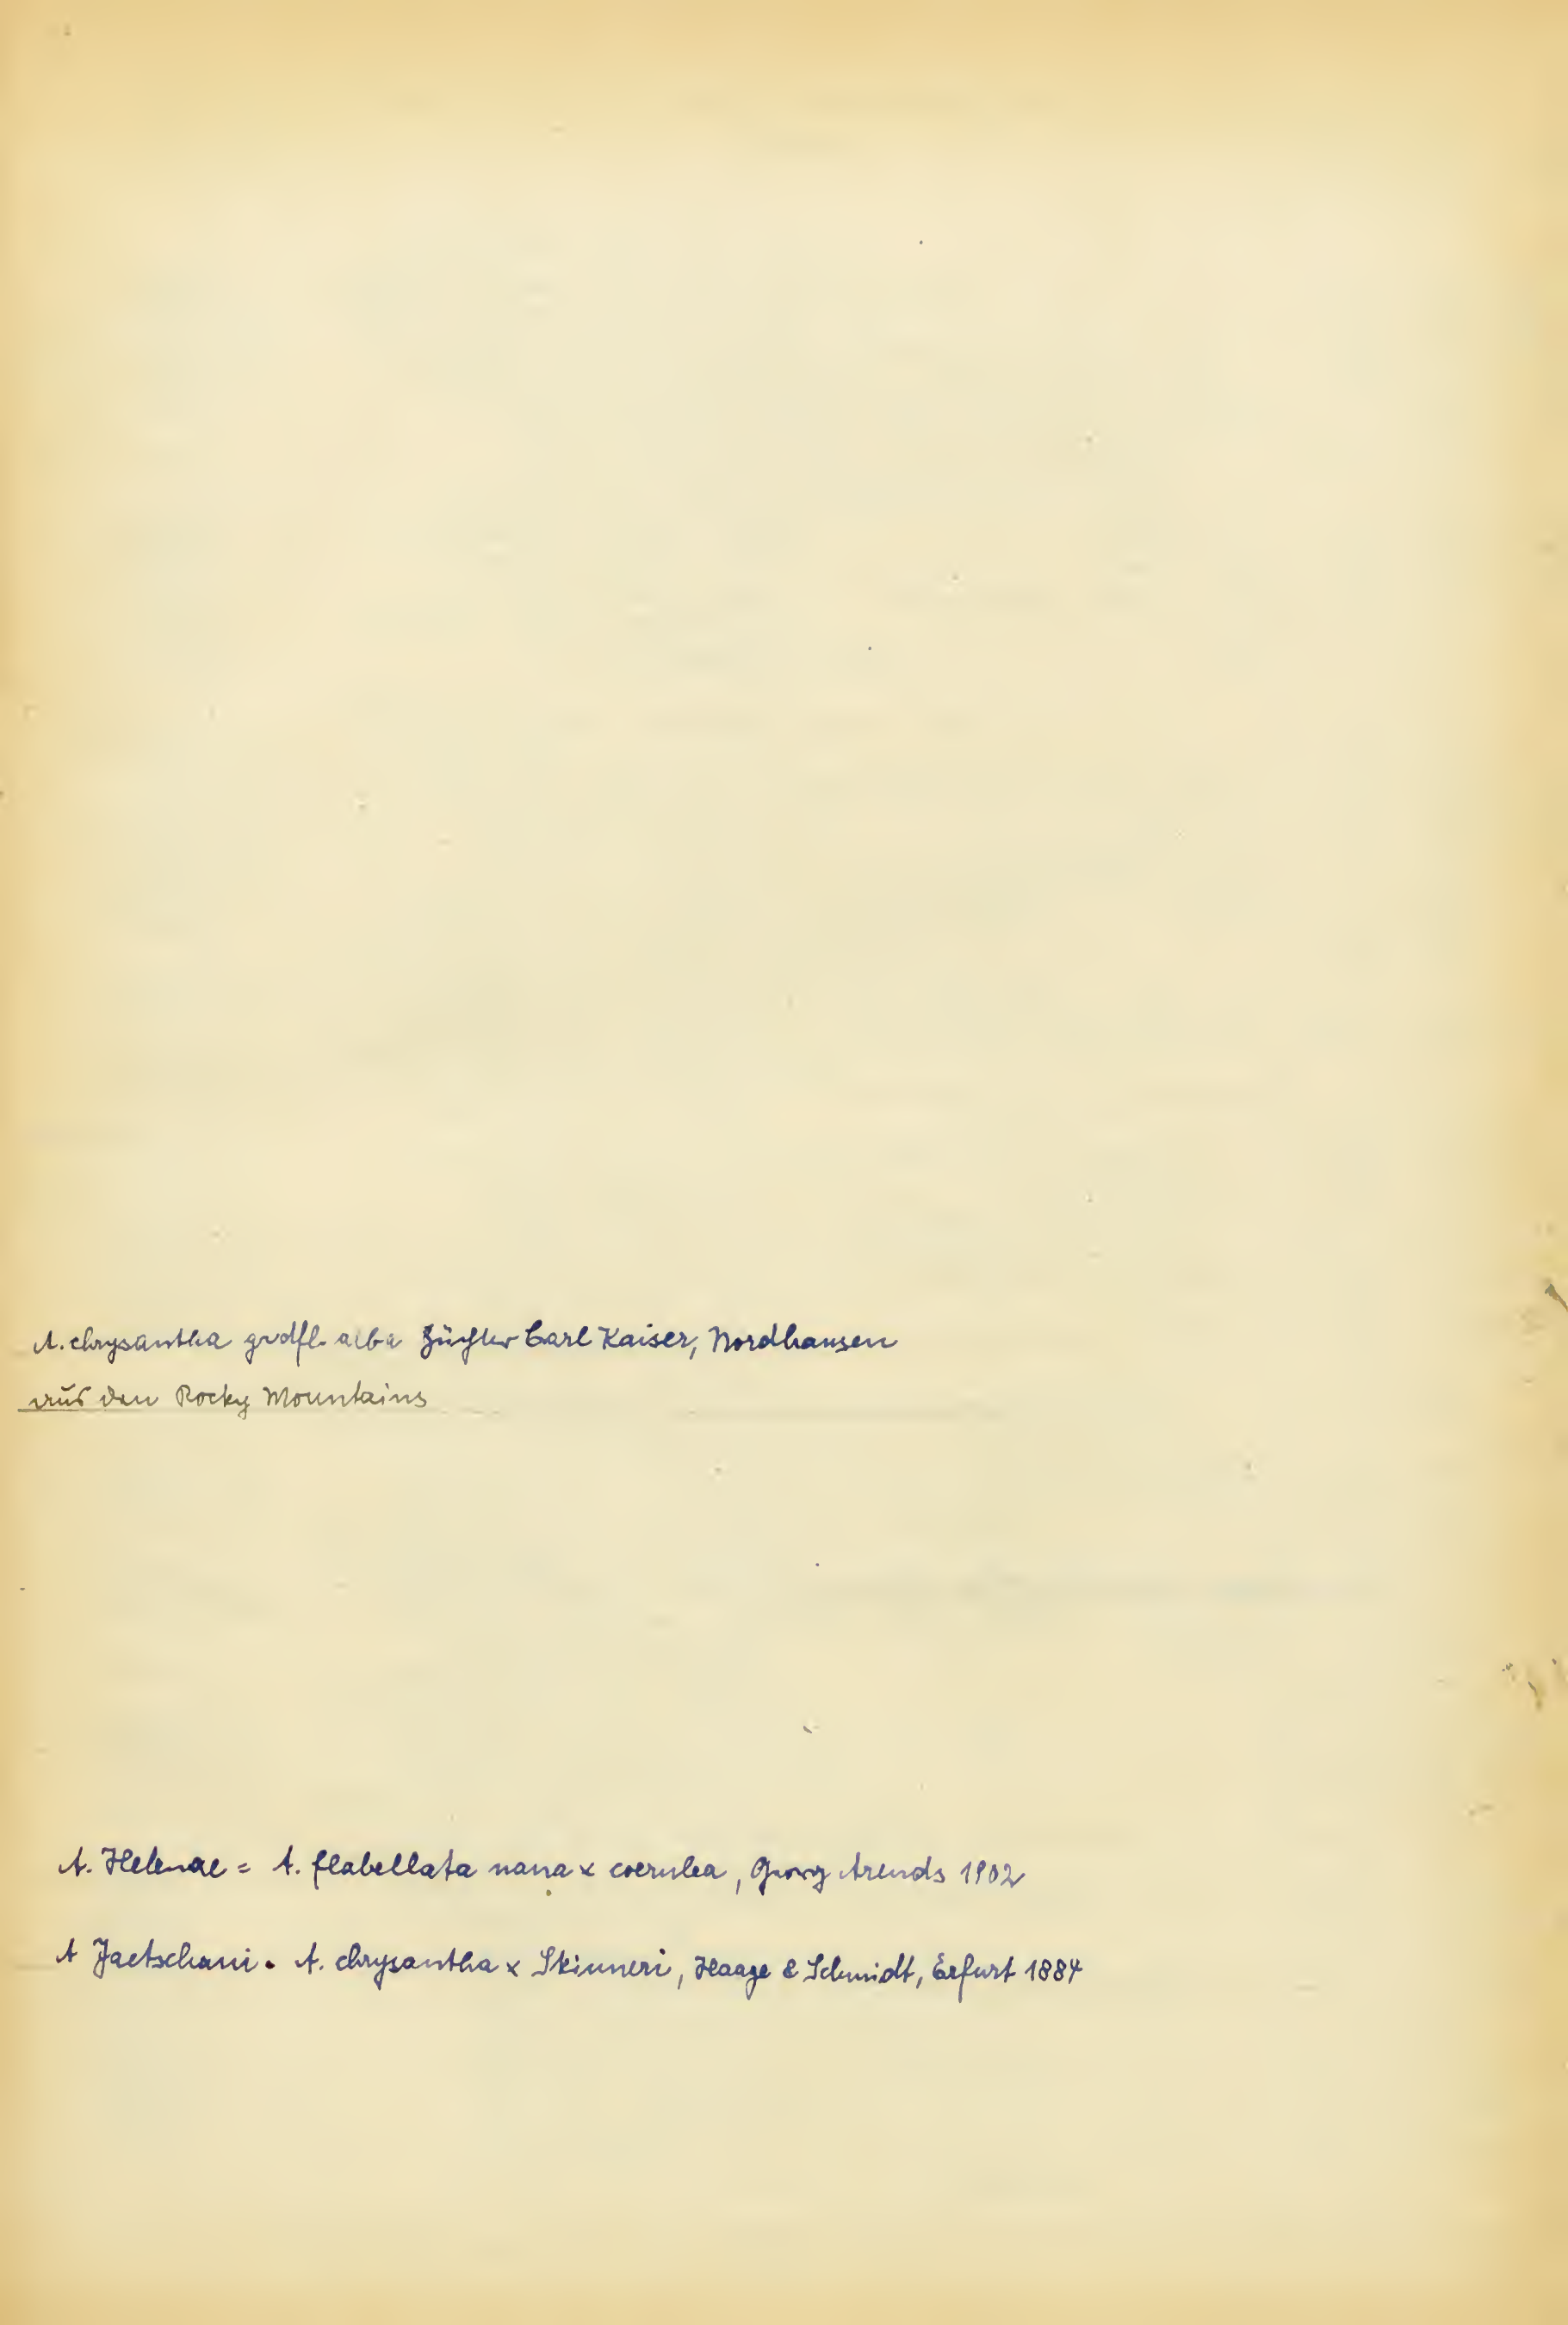 A. chrysantha grdfl. alba Züchter Carl Kaiser, Nordhausen
aus den Rocky Mountains
A. Helenae = A. flabellata nana x coerulea, Georg Arends 1902
A Jaetschaui. A. chrysantha x Skinneri, Haage & Schmidt, Erfurt 1884